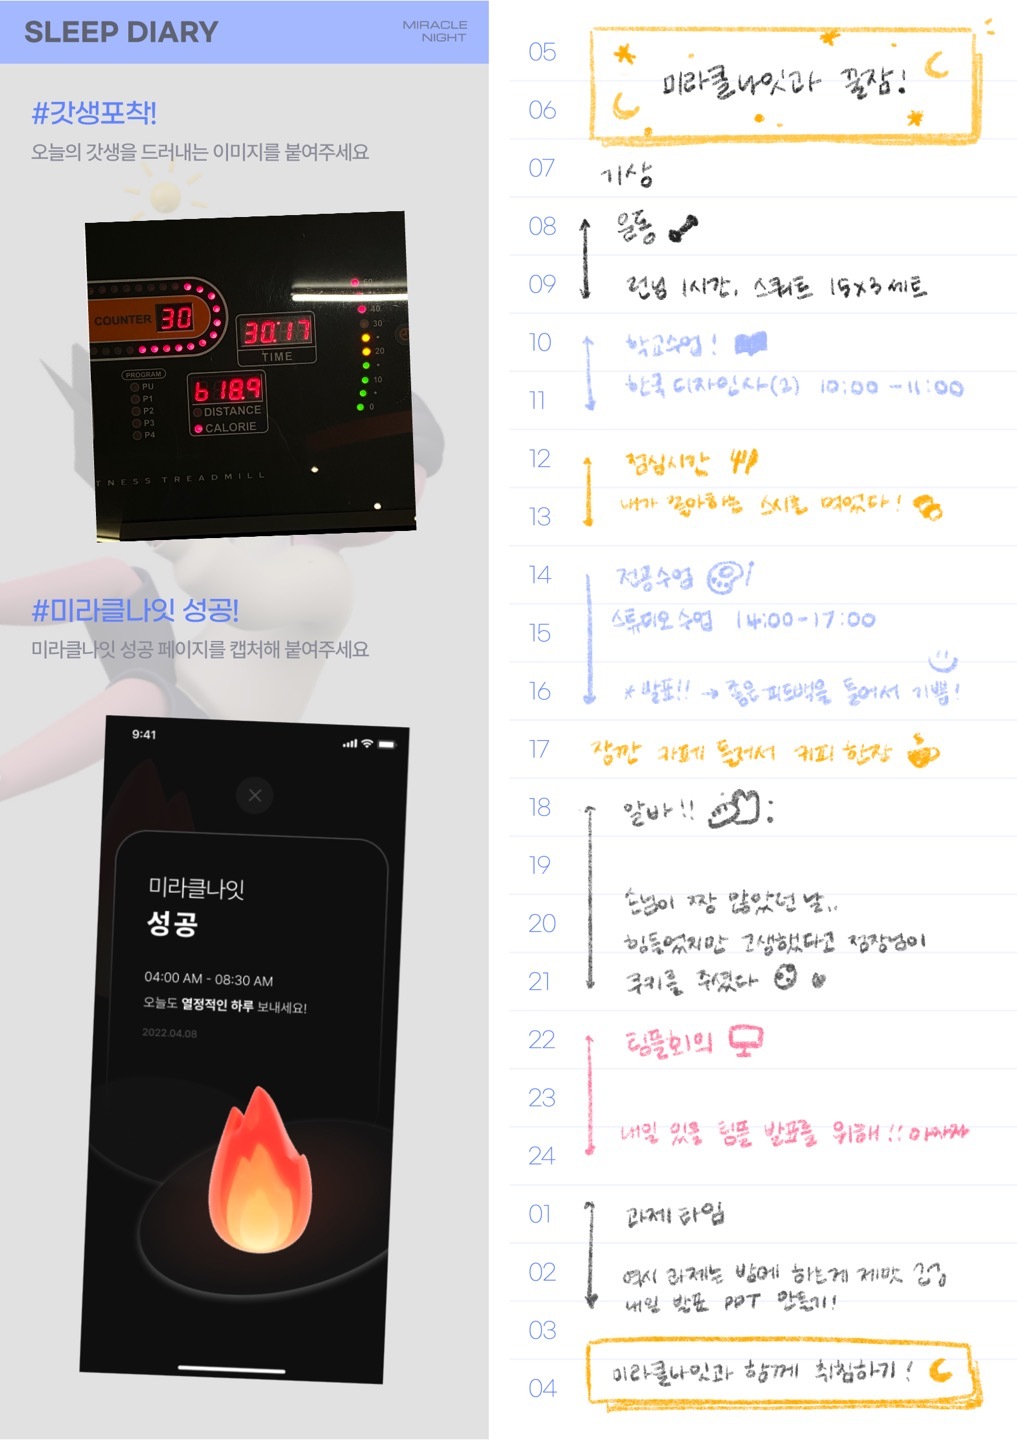 SLEEP DIARY
MIRACLE
NIGHT
#갓생포착!
오늘의 갓생을 드러내는 이미지를 붙여주세요
COUNTER 30
30.17
TIME
618.9
DISTANCE
CALORIE
PROGRAM
PU
P1
P2
P3
P4
40
30
20
10
0
TNESS TREADMILL
#미라클나잇 성공!
미라클나잇 성공 페이지를 캡처해 붙여주세요
9:41
미라클나잇
성공
04:00 AM - 08:30 AM
오늘도 열정적인 하루 보내세요!
2022.04.08
05
미라클나잇과 꿀잠!
06
07 기상
08 운동
09 런닝 1시간, 스쿼트 15x3세트
10 학교수업!
11 한국 디자인사(2) 10:00-11:00
12 점심시간
13 내가 좋아하는 스시를 먹었다!
14 전공수업
15 스튜디오 수업 14:00-17:00
16 *발표!! → 좋은 피드백을 들어서 기쁨!
17 잠깐 카페 들려서 커피 한잔
18 알바!!
19
20 손님이 짱 많았던 날..
힘들었지만 고생했다고 점장님이
21 쿠키를 주셨다
22 팀플회의
23
내일 있을 팀플 발표를 위해!! 아자자
24
01 과제타임
02 역시 과제는 밤에 하는게 제맛
내일 발표 PPT 만들기!
03
미라클나잇과 함께 취침하기!
04